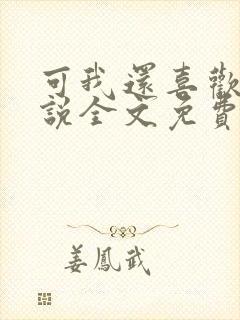 可我還喜歡
說全文免費
姜鳳武